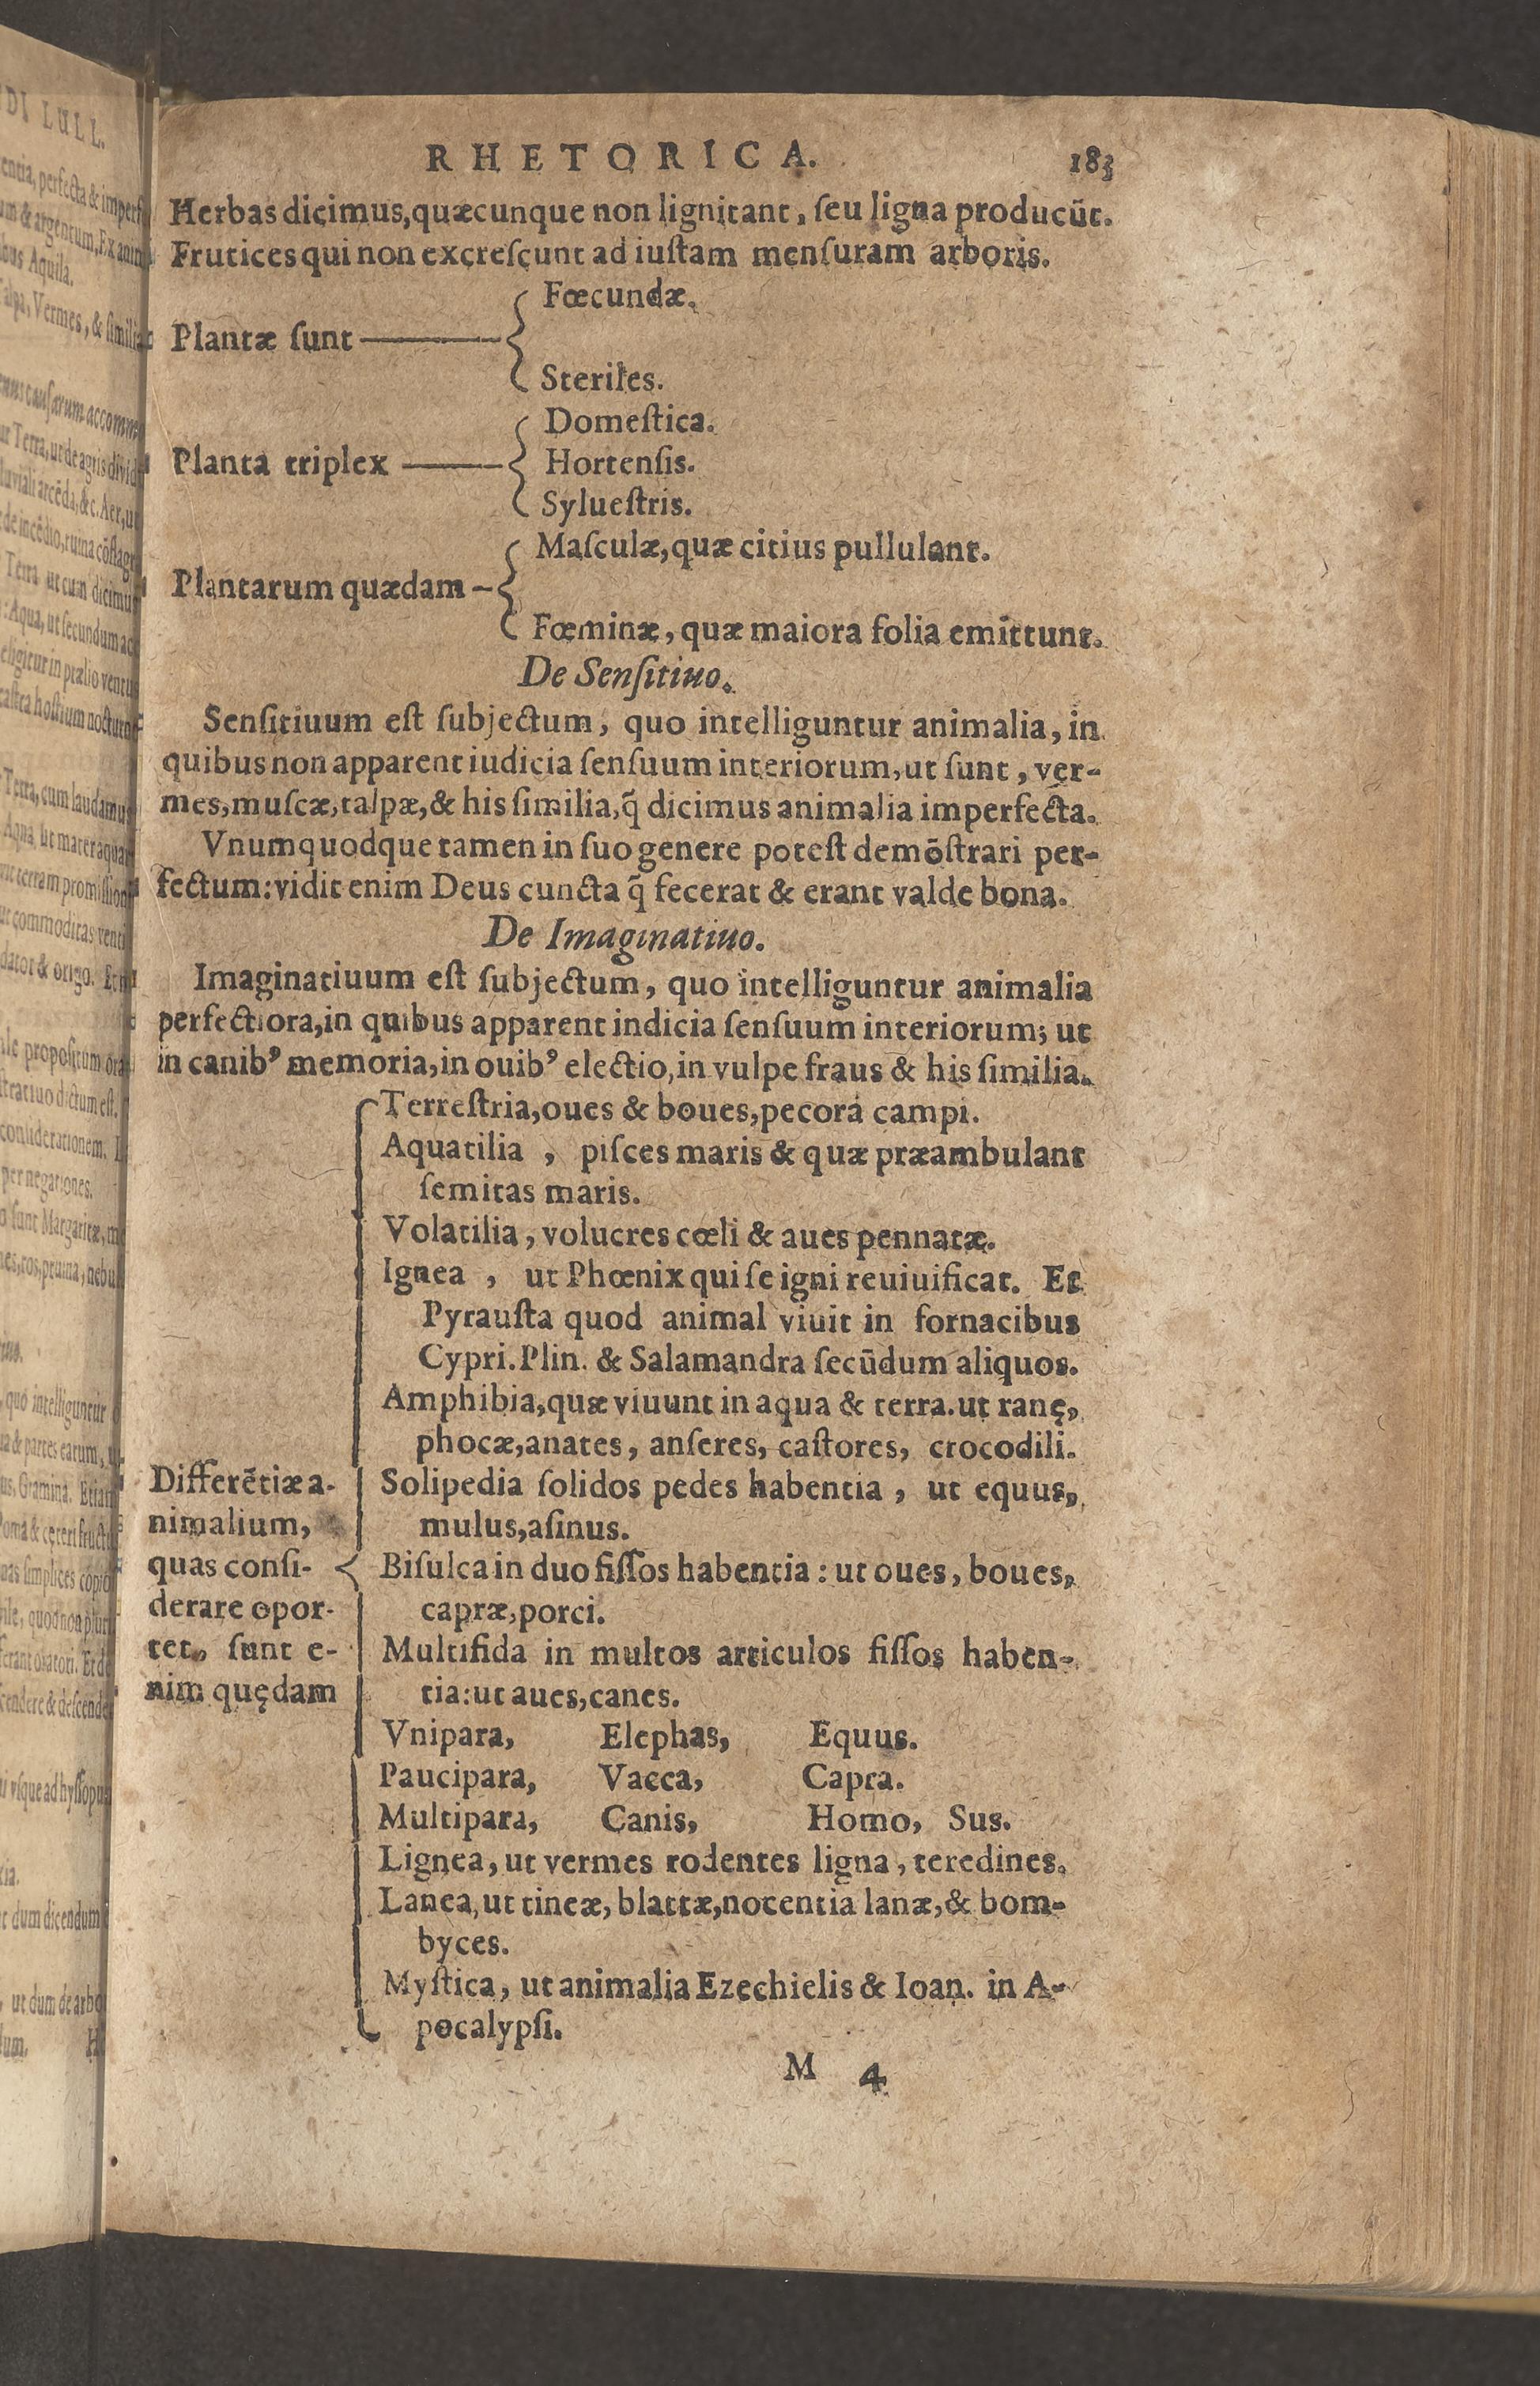 RHETORICA. 183
Herbas dicimus,quæcunque non lignitant, ſeu ligna producũt.
Frutices qui non excreſcunt ad iuſtam menſuram arboris.
Fœcundæ.
Plantæ ſunt
Steriles.
Domeſtica.
Planta triplex
Hortenſis.
Sylueſtris.
Maſculæ,quæ citius pullulant.
Plantarum quædam
Fœminæ, quæ maiora folia emittunt.
De Senſitiuo.
Senſitiuum eſt ſubjectum, quo intelliguntur animalia, in
quibus non apparent iudicia ſenſuum interiorum,ut ſunt, ver-
mes,muſcæ,talpæ,& his ſimilia,q̃ dicimus animalia imperfecta.
Vnumquodque tamen in ſuo genere poteſt demõſtrari per-
fectum:vidit enim Deus cuncta q̃ fecerat & erant valde bona.
De Imaginatiuo.
Imaginatiuum eſt ſubjectum, quo intelliguntur animalia
perfectiora,in quibus apparent indicia ſenſuum interiorum; ut
in canibꝰ memoria,in ouibꝰ electio,in vulpe fraus & his ſimilia.
Terreſtria,oues & boues,pecora campi.
Aquatilia , piſces maris & quæ præambulant
ſemitas maris.
Volatilia, volucres cœli & aues pennatæ.
Ignea , ut Phœnix qui ſe igni reuiuificat. Et
Pyrauſta quod animal viuit in fornacibus
Cypri.Plin. & Salamandra ſecũdum aliquos.
Amphibia,quæ viuunt in aqua & terra.ut ranę,
phocæ,anates, anſeres, caſtores, crocodili.
Differẽtiæ a-
nimalium,
quas conſi-
derare opor-
tet, ſunt e-
nim quędam
Solipedia ſolidos pedes habentia , ut equus,
mulus,aſinus.
Biſulca in duo fiſſos habentia : ut oues, boues,
capræ,porci.
Multifida in multos articulos fiſſos haben-
tia:ut aues,canes.
Vnipara, Elephas, Equus.
Paucipara, Vacca, Capra.
Multipara, Canis, Homo, Sus.
Lignea, ut vermes rodentes ligna, teredines.
Lanea,ut tineæ, blattæ,nocentia lanæ,& bom-
byces.
Myſtica, ut animalia Ezechielis & Ioan. in A-
pocalypſi.
M 4